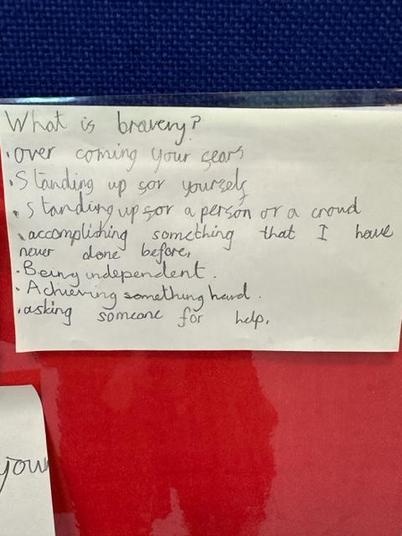 What is bravery?
• over coming your sears
• Standing up sor yourself
• Standing up sor a person or a croud
• accomplishing something that I have
never done before.
• Being independent.
• Achieving something hard.
• asking someone for help.
your